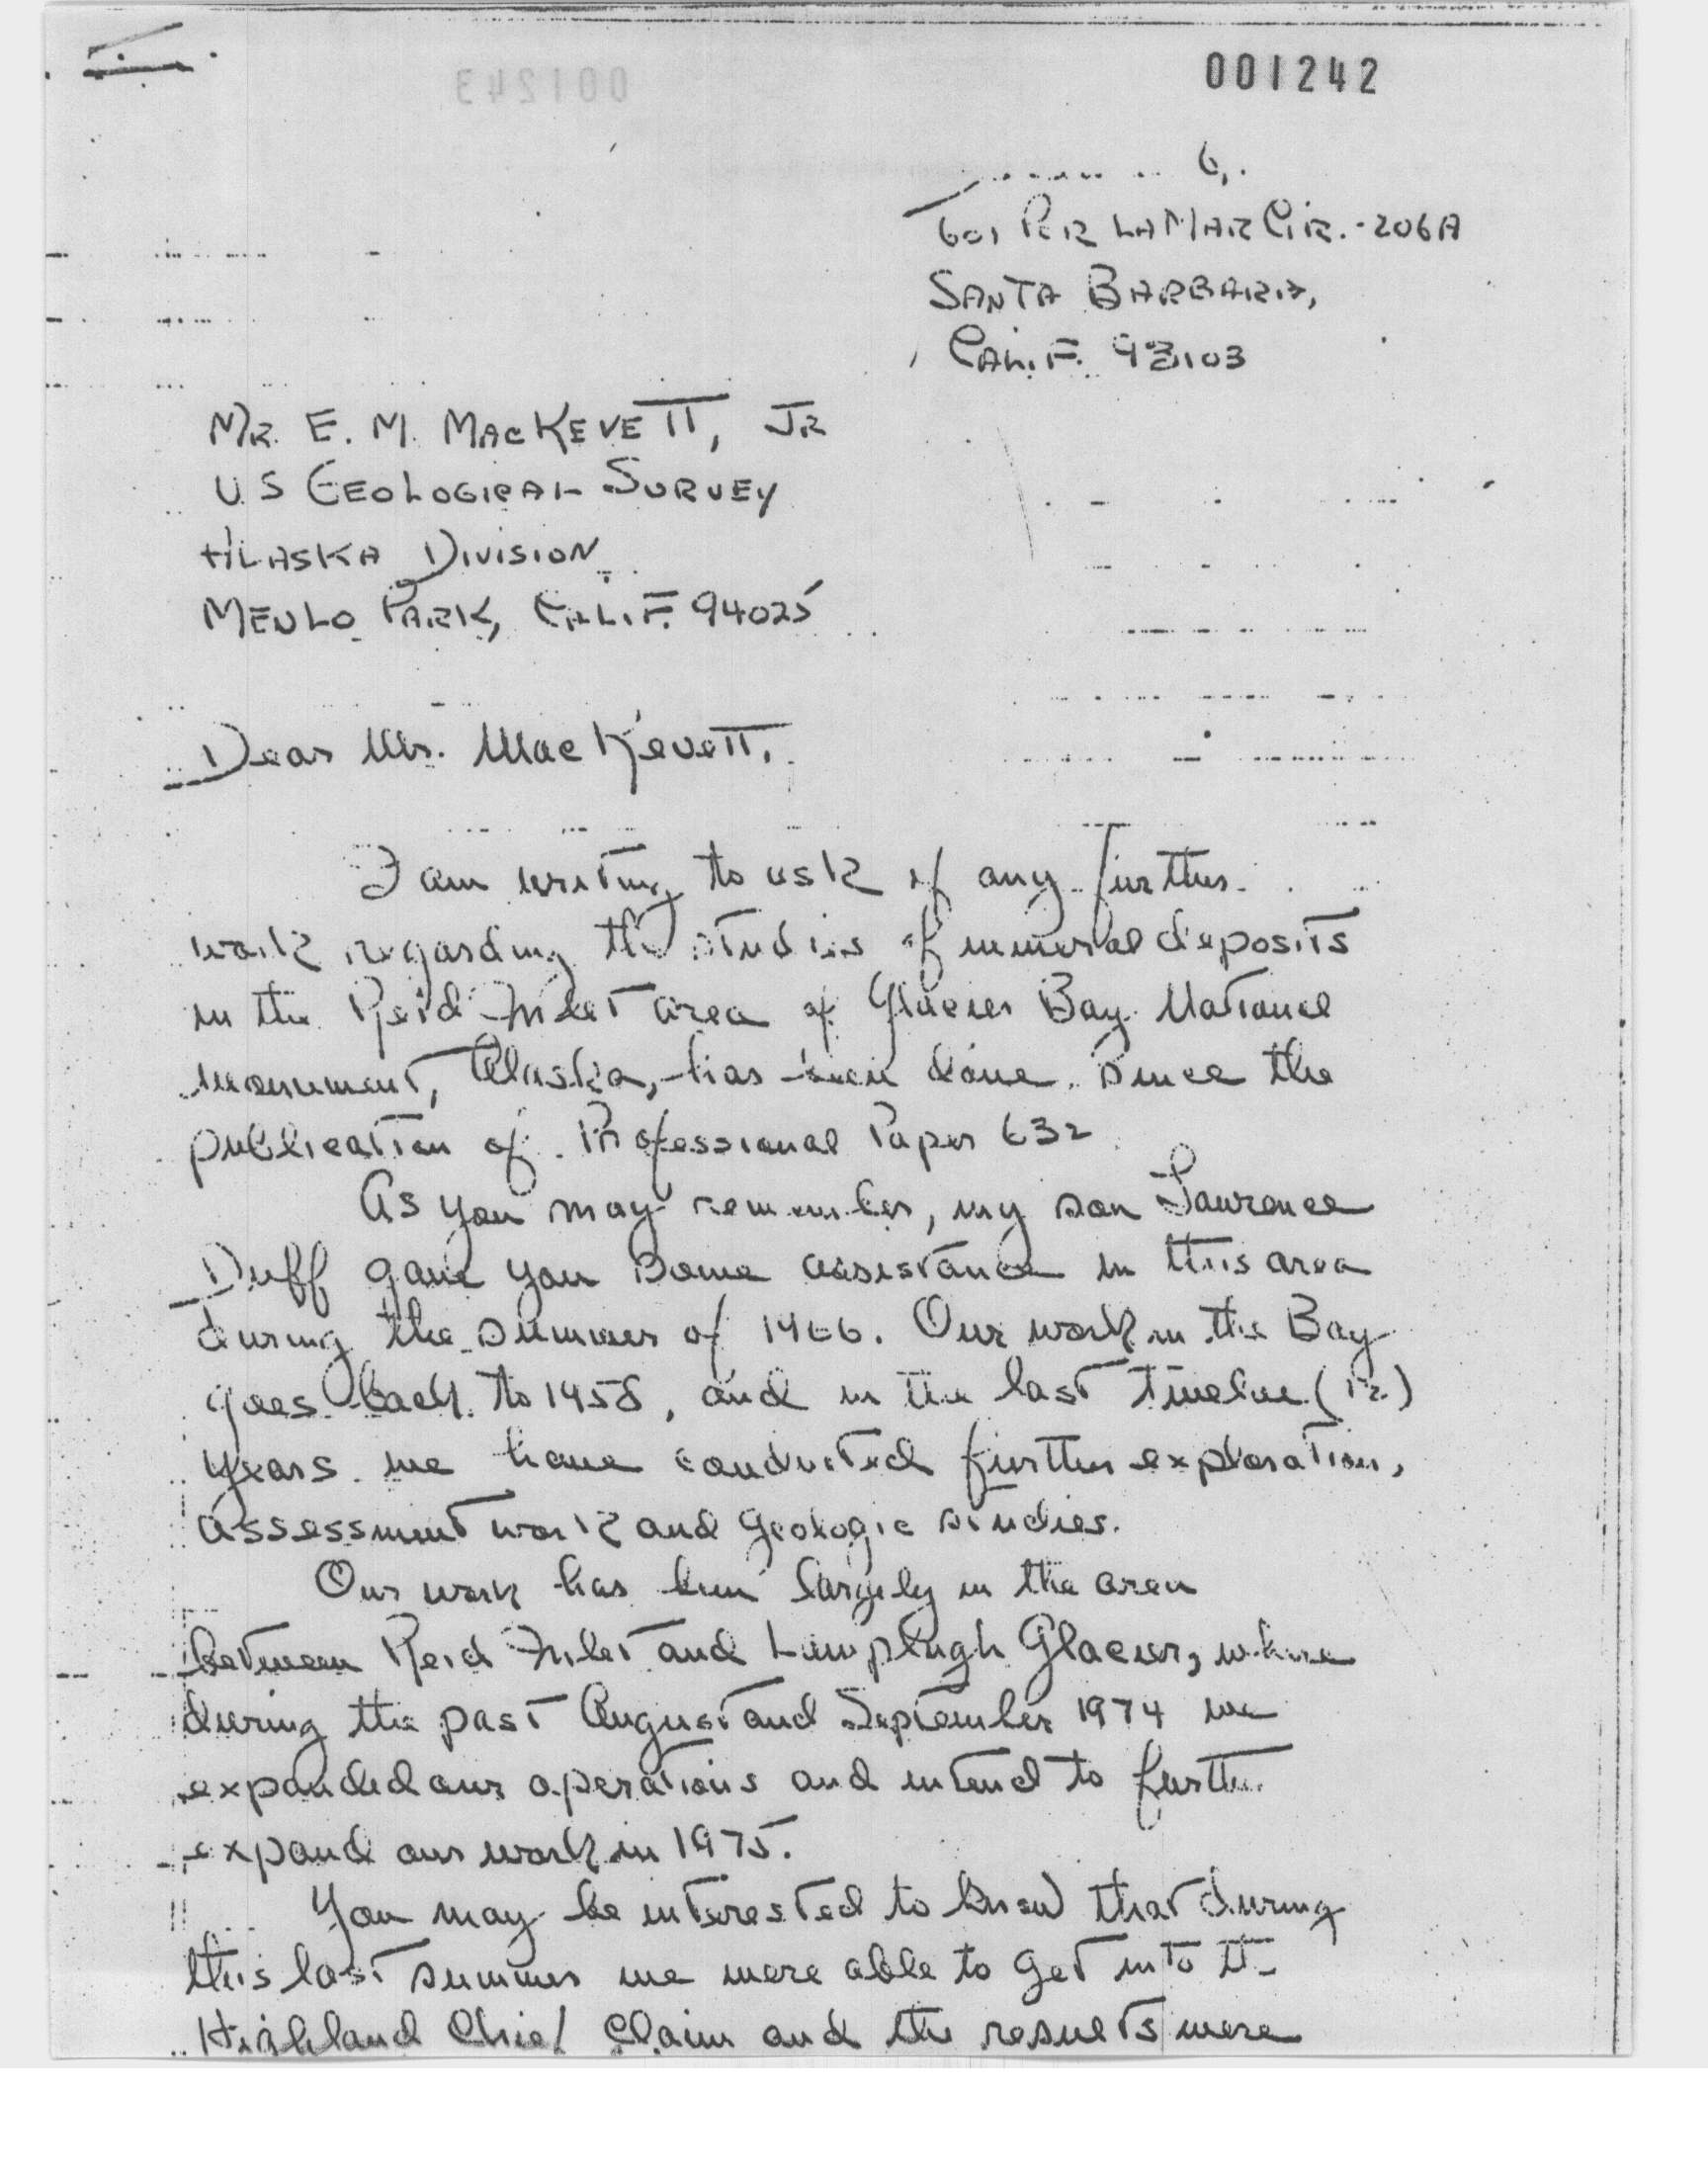 001242
001243
601 PER LA MAR CIR. - 206A
SANTA BARBARA,
CALIF. 93103
MR. E. M. MACKEVETT, JR
U S GEOLOGICAL SURVEY
ALASKA DIVISION
MENLO PARK, CALIF. 94025
Dear Mr. MacKevett,
I am writing to ask if any further
work regarding the studies of mineral deposits
in the Reid Inlet area of Glacier Bay National
Monument, Alaska, has been done since the
publication of Professional Paper 632
As you may remember, my son Lawrence
Duff gave you some assistance in this area
during the summer of 1966. Our work in the Bay
goes back to 1958, and in the last twelve (12)
years we have conducted further exploration,
assessment work and geologic studies.
Our work has been largely in the area
between Reid Inlet and Lamplugh Glacier, where
during the past August and September 1974 we
expanded our operations and intend to further
expand our work in 1975.
You may be interested to know that during
this last summer we were able to get into the
Highland Chief Claim and the results were